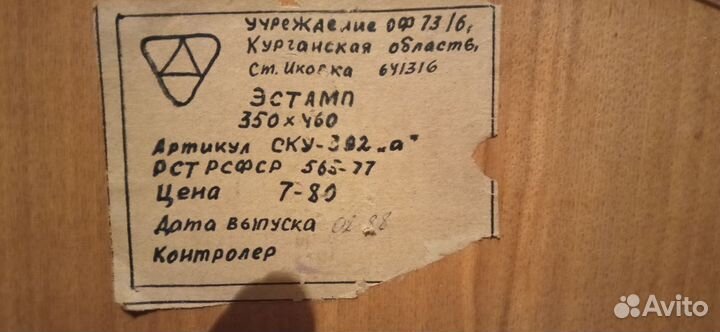 Учреждение ОФ 73/6,
Курганская область,
Ст. Иковка 641316
ЭСТАМП
350×460
Артикул СКУ-392 „а"
РСТ РСФСР 565-77
Цена 7-80
Дата выпуска 02 88
Контролер
Avito